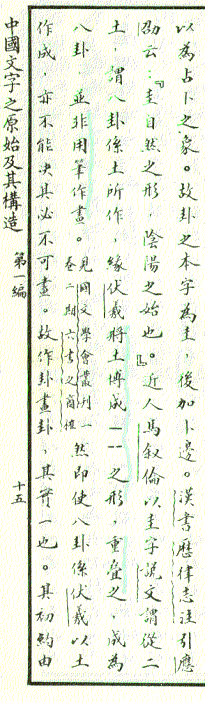 以為占卜之象。故卦之本字為圭,後加卜邊。漢書歷律志注引應
劭云:『圭自然之形,陰陽之始也。』近人馬叙倫以圭字說文謂從二
土,謂八卦係土所作,緣伏羲將土摶成一一之形,重疊之,成為
八卦,並非用筆作畫。見國文學會叢刊一卷二期六書之商榷然即使八卦係伏羲以土
作成,亦不能決其必不可畫。故作卦畫卦,其實一也。其初約由
中國文字之原始及其構造 第一編 十五